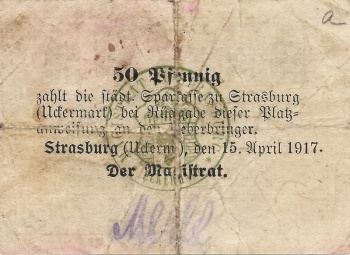 a
50 Pfennig
zahlt die städt. Sparkasse zu Strasburg
(Uckermark) bei Rückgabe dieser Platz-
anweisung an den Ueberbringer.
Strasburg (Uckerm.), den 15. April 1917.
Der Magistrat.